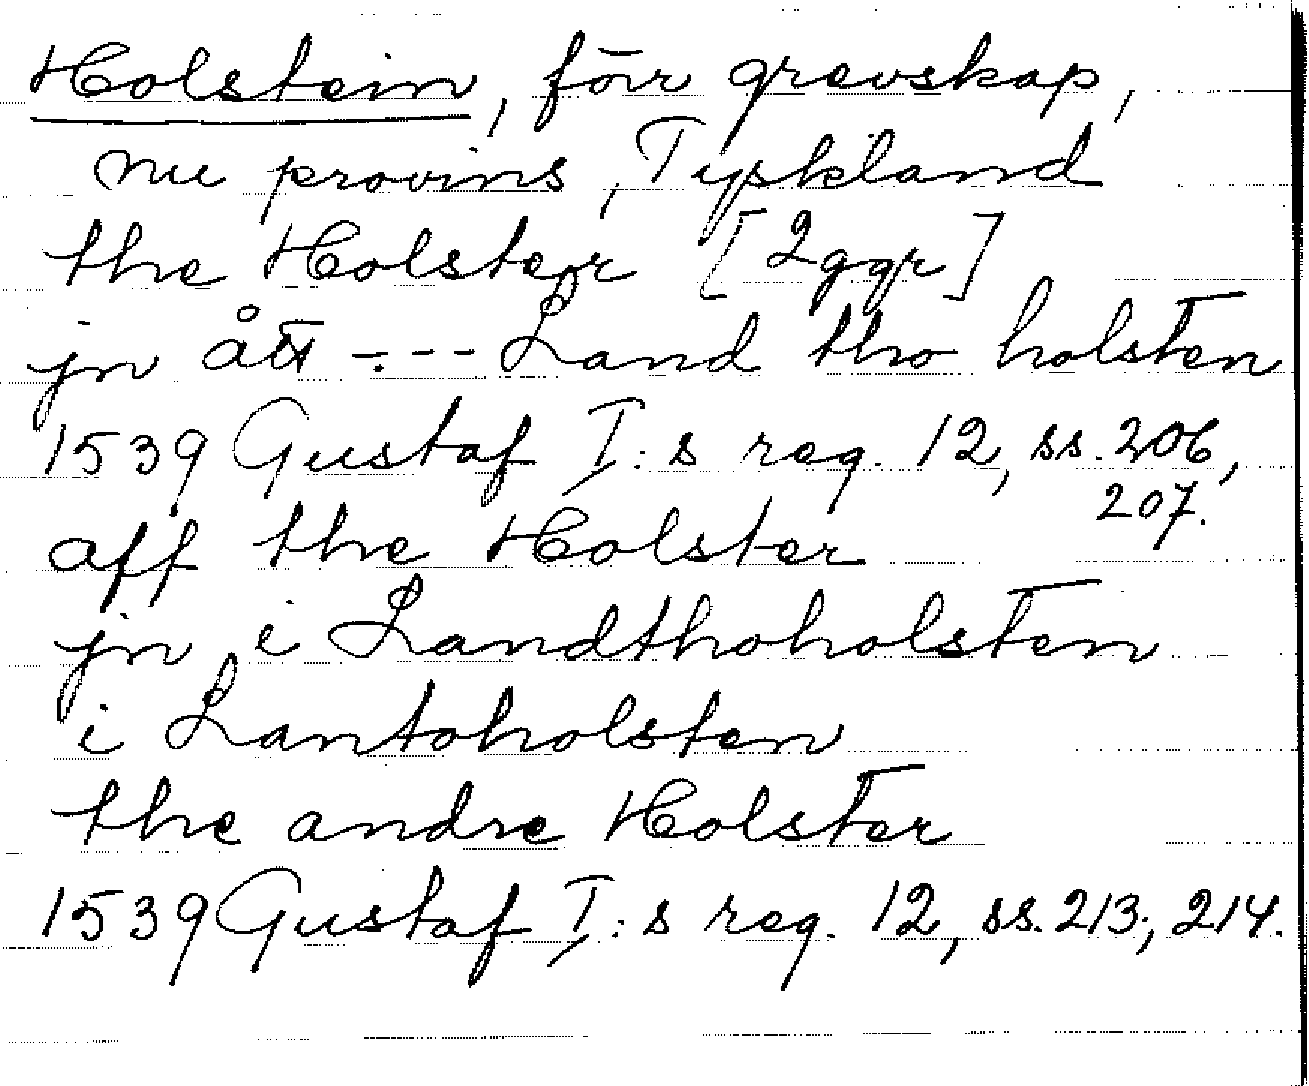 Holstein, förr grevskap,
nu provins, Tyskland
the Holster [2ggr]
jn ått -.--- Land tho holsten
1539 Gustaf I:s reg. 12, ss. 206,
207.
aff the Holster
jn i Landthoholsten
i Lantoholsten
the andre Holster
1539 Gustaf I:s reg. 12, ss. 213, 214.